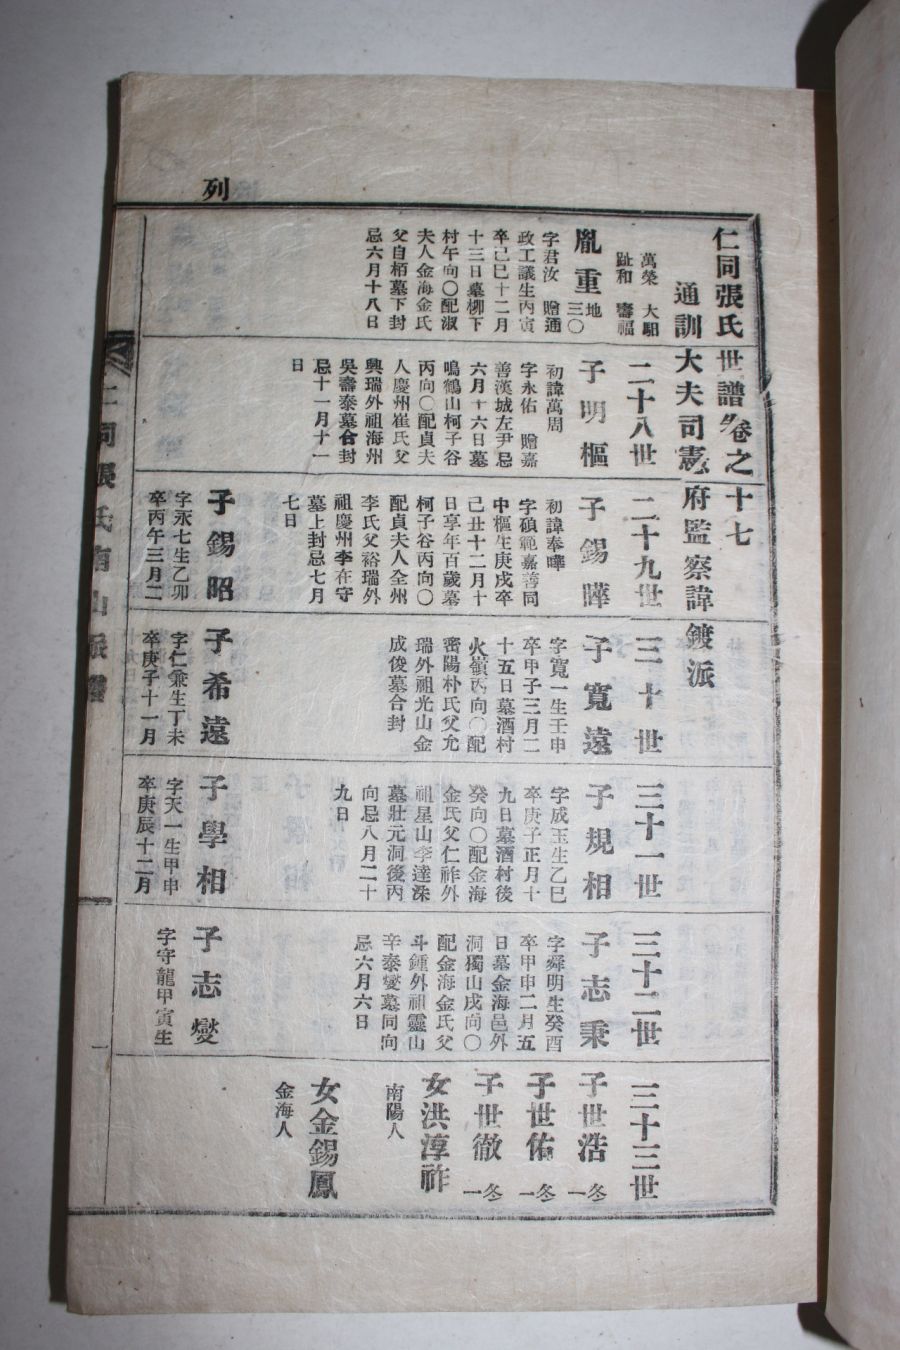 列
仁同張氏世譜卷之十七
通訓大夫司憲府監察諱鍍派
萬榮　大馹
趾和　壽福
胤重 地三〇
字君汝　贈通
政工議生丙寅
卒己巳十二月
十三日墓柳下
村午向〇配淑
夫人金海金氏
父自栢墓下封
忌六月十八日
二十八世
子明樞
初諱萬周
字永佑　贈嘉
善漢城左尹忌
六月十六日墓
鳴鶴山柯子谷
丙向〇配貞夫
人慶州崔氏父
興瑞外祖海州
吳壽泰墓合封
忌十一月十一
日
二十九世
子錫曄
初諱奉曄
字碩範嘉善同
中樞生庚戌卒
己丑十二月十
日享年百歲墓
柯子谷丙向〇
配貞夫人全州
李氏父裕瑞外
祖慶州李在守
墓上封忌七月
七日
子錫昭
字永七生乙卯
卒丙午三月二
三十世
子寬遠
字寬一生壬申
卒甲子三月二
十五日墓酒村
火嶺丙向〇配
密陽朴氏父允
瑞外祖光山金
成俊墓合封
子希遠
字仁兼生丁未
卒庚子十一月
三十一世
子規相
字成玉生乙巳
卒庚子正月十
九日墓酒村後
癸向〇配金海
金氏父仁祚外
祖星山李達洙
墓壯元洞後丙
向忌八月二十
九日
子學相
字天一生甲申
卒庚辰十二月
三十二世
子志秉
字舜明生癸酉
卒甲申二月五
日墓金海邑外
洞獨山戌向〇
配金海金氏父
斗鍾外祖靈山
辛泰燮墓同向
忌六月六日
子志燮
字守龍甲寅生
三十三世
子世浩 冬一
子世佑 冬一
子世徹 冬一
女洪淳祚
南陽人
女金錫鳳
金海人
仁同張氏南山派譜